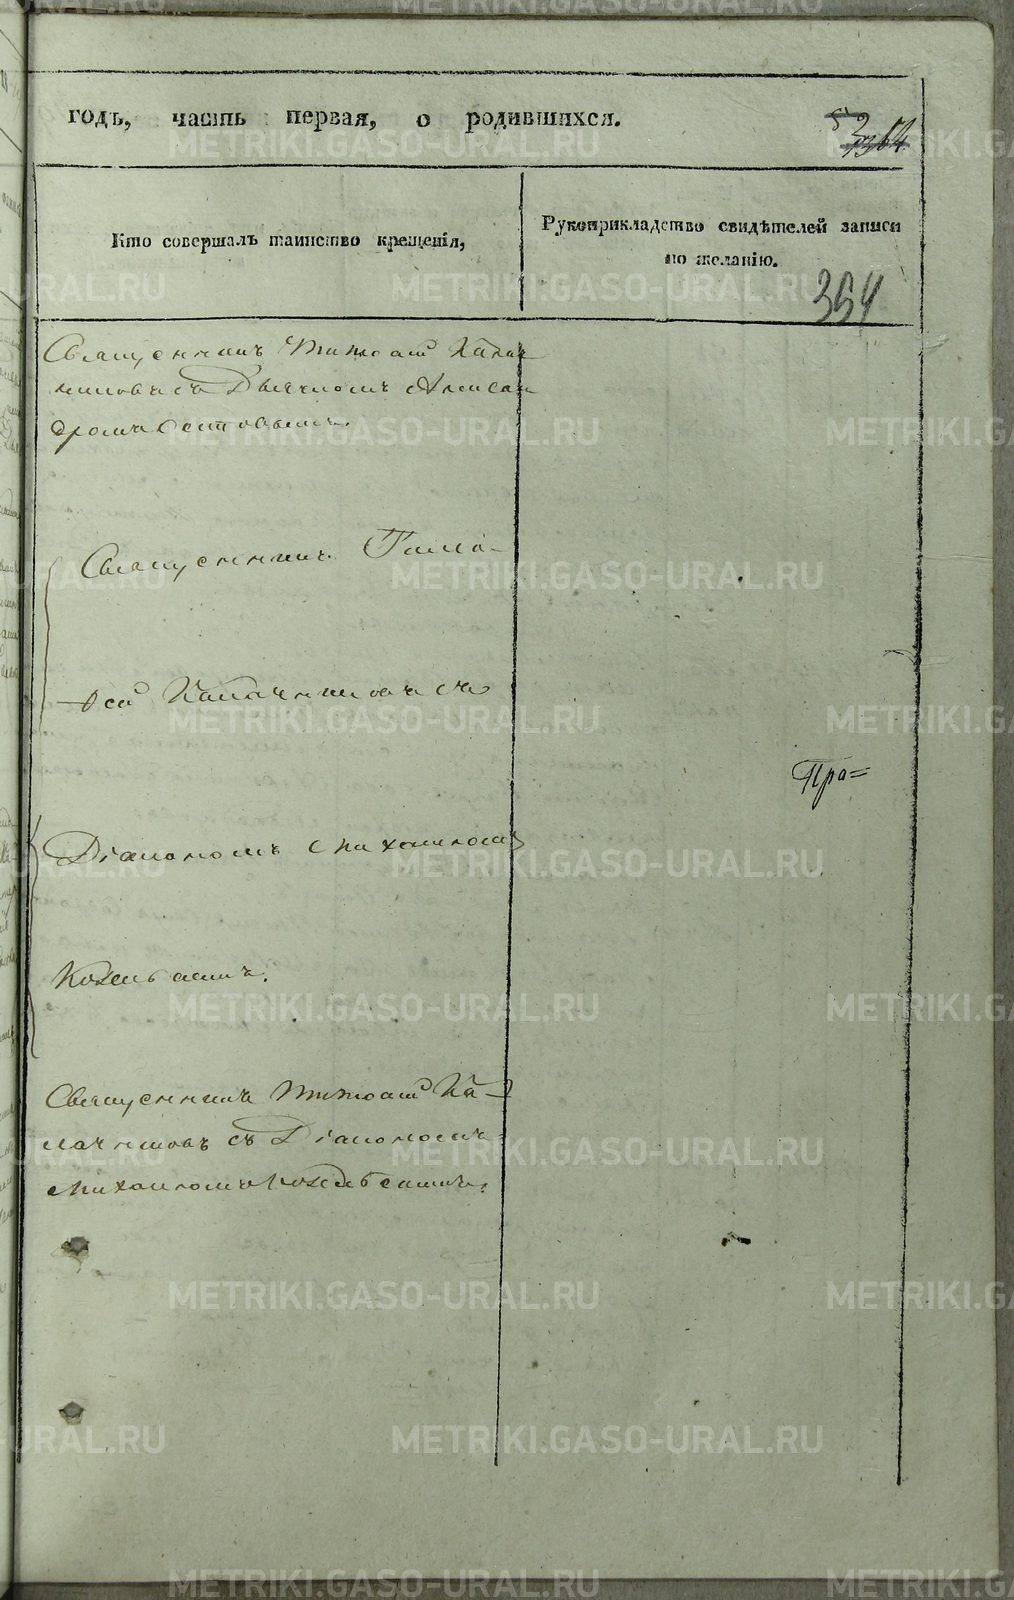 годъ, часть первая, о родившихся.
53
Кто совершалъ таинство крещенія,
Рукоприкладство свидѣтелей записи
по желанію.
354
Священникъ Тимофей Калач
никовъ съ Дьячкомъ Алексан
дромъ
Священникъ Тимо-
ѳей Калачниковъ съ
Пра=
Діакономъ Михаиломъ
Священникъ Тимофей Ка-
лачниковъ съ Діакономъ
Михаиломъ
METRIKI.GASO-URAL.RU